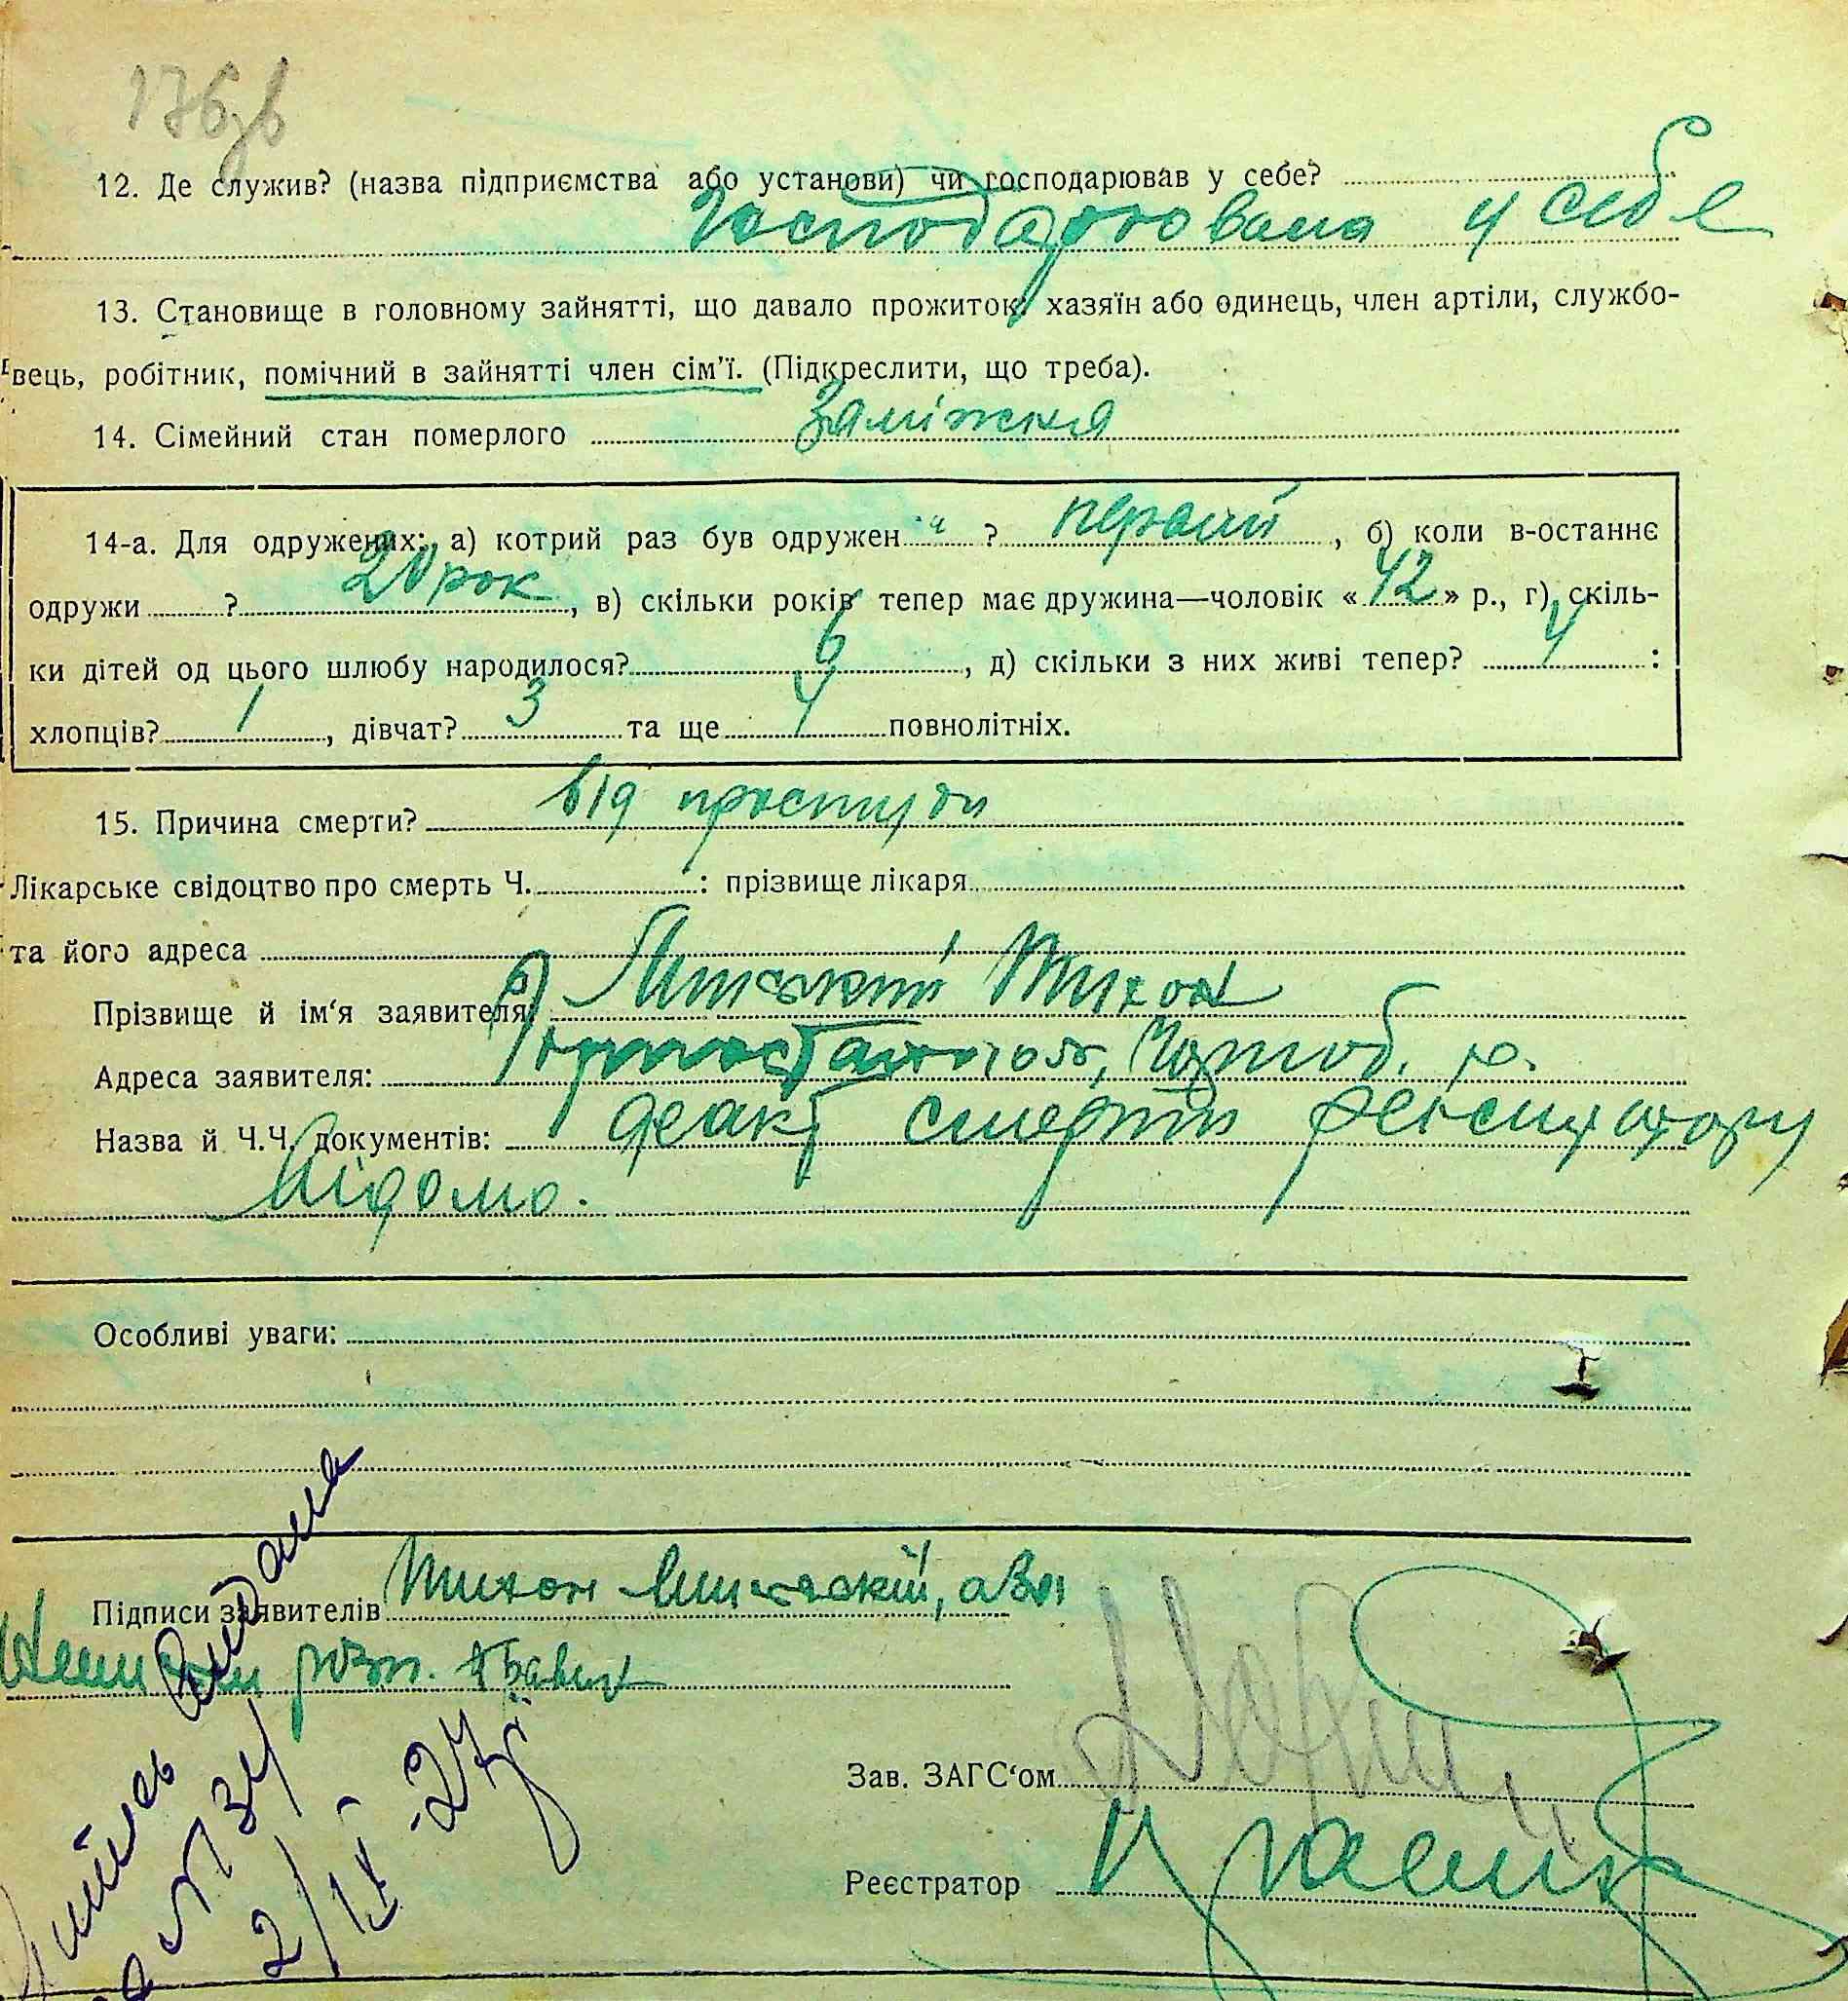 176зв
12. Де служив? (назва підприємства або установи) чи господарював у себе?
Господарювала у себе
13. Становище в головному зайнятті, що давало прожиток: хазяїн або одинець, член артіли, службо-
вець, робітник, помічний в зайнятті член сім'ї. (Підкреслити, що треба).
14. Сімейний стан померлого заміжня
14-а. Для одружених: а) котрий раз був одружен а ? первий, б) коли в-останнє
одружи ? 20 рок, в) скільки років тепер має дружина—чоловік «42» р., г) скіль-
ки дітей од цього шлюбу народилося? 6, д) скільки з них живі тепер? 4 :
хлопців? 1, дівчат? 3 та ще 4 повнолітніх.
15. Причина смерти? від простуди
Лікарське свідоцтво про смерть Ч. : прізвище лікаря
та його адреса
Прізвище й ім'я заявителя: Тихон
Адреса заявителя:
Назва й Ч.Ч. документів: смерти
відомо.
Особливі уваги:
Підписи заявителів Тихон
Зав. ЗАГС'ом
Реєстратор
видана
№ 34
2/IX-27р